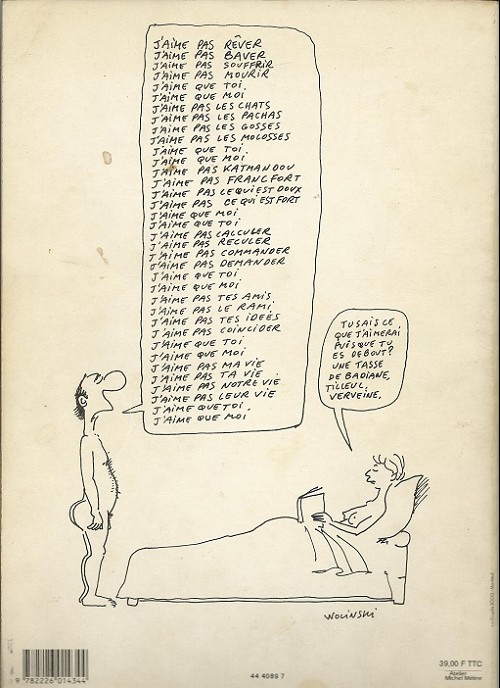 J'AIME PAS RÊVER
J'AIME PAS BAVER
J'AIME PAS SOUFFRIR
J'AIME PAS MOURIR
J'AIME QUE TOI.
J'AIME QUE MOI
J'AIME PAS LES CHATS
J'AIME PAS LES PACHAS
J'AIME PAS LES GOSSES
J'AIME PAS LES MOLOSSES
J'AIME QUE TOI.
J'AIME QUE MOI.
J'AIME PAS KATMANDOU
J'AIME PAS FRANCFORT
J'AIME PAS CE QUI EST DOUX
J'AIME PAS CE QUI EST FORT
J'AIME QUE MOI.
J'AIME QUE TOI.
J'AIME PAS CALCULER
J'AIME PAS RECULER
J'AIME PAS COMMANDER
J'AIME PAS DEMANDER
J'AIME QUE TOI.
J'AIME QUE MOI
J'AIME PAS TES AMIS.
J'AIME PAS LE RAMI.
J'AIME PAS TES IDÉES
J'AIME PAS COINCIDER
J'AIME QUE TOI.
J'AIME QUE MOI
J'AIME PAS MA VIE
J'AIME PAS TA VIE.
J'AIME PAS NOTRE VIE
J'AIME PAS LEUR VIE
J'AIME QUE TOI.
J'AIME QUE MOI
TU SAIS CE
QUE T'AIMERAI
PUISQUE TU
ES DEBOUT?
UNE TASSE
DE BADIANE,
TILLEUL,
VERVEINE.
WOLINSKI
9 782226 014344
44 4089 7
39,00 F TTC
Atelier
Michel Méline